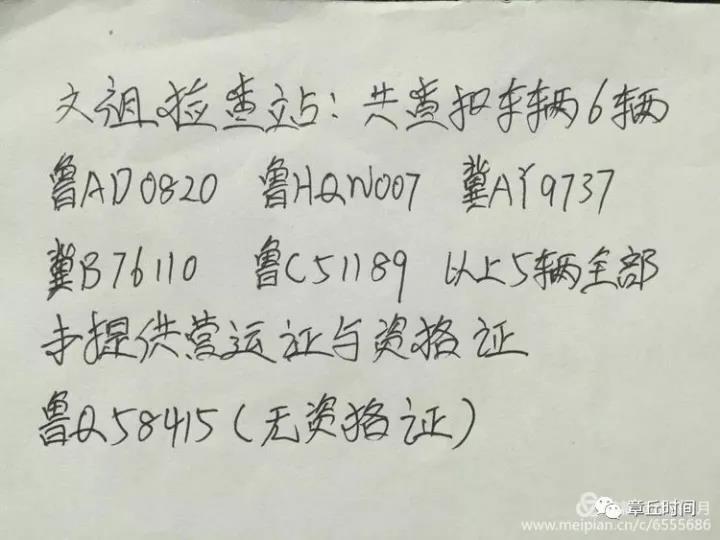 文祖检查站：共查扣车辆6辆
鲁AD0820 鲁HQW007 冀AY9737
冀B76110 鲁C51189 以上5辆全部
未提供营运证与资格证
鲁Q58415（无资格证）
章丘时间
月
www.meipian.cn/c/6555686